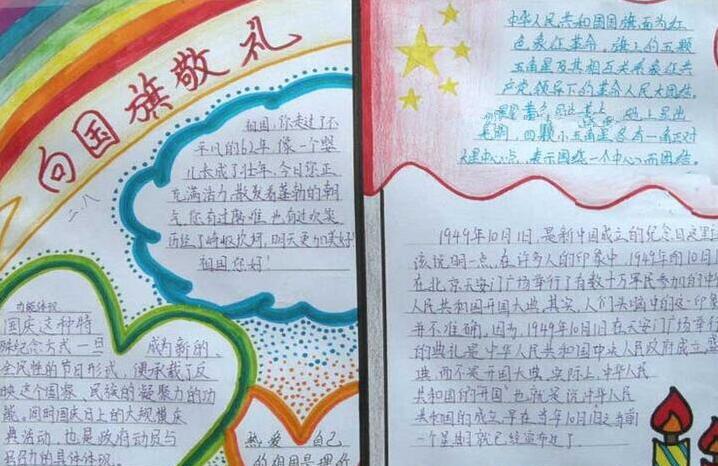 向国旗敬礼
二八
祖国,你走过了不
平凡的62年,像一个婴
儿长成了壮年,今日您正
充满活力,散发着蓬勃的朝
气,您有过磨难,也有过欢笑
历经了崎岖坎坷,明天更加美好!
祖国您好!
功能体现
国庆这种特
殊纪念方式一旦 成为新的、
全民性的节日形式,便承载了反
映这个国家、民族的凝聚力的功
能。同时国庆日上的大规模庆
典活动,也是政府动员与
号召力的具体体现。
热爱 自己
的祖国是理所
中华人民共和国国旗旗面为红
色象征革命。旗上的五颗
五角星及其相互关系象征共
产党领导下的革命人民大团结。
星 黄色 地上显出
光明,四颗小五角星各有一角正对
大星中心点,表示围绕一个中心而团结。
1949年10月1日,是新中国成立的纪念日这里
该说明一点,在许多人的印象中,1949年的10月1
在北京天安门广场举行了有数十万军民参加的中
人民共和国开国大典。其实,人们头脑中的这一印象
并不准确。因为,1949年10月1日在天安门广场举行
的典礼是中华人民共和国中央人民政府成立盛
典,而不是开国大典。实际上,中华人民
共和国的"开国",也就是说中华人民
共和国的成立,早在当年10月1日之前
一个星期就已经宣布过了